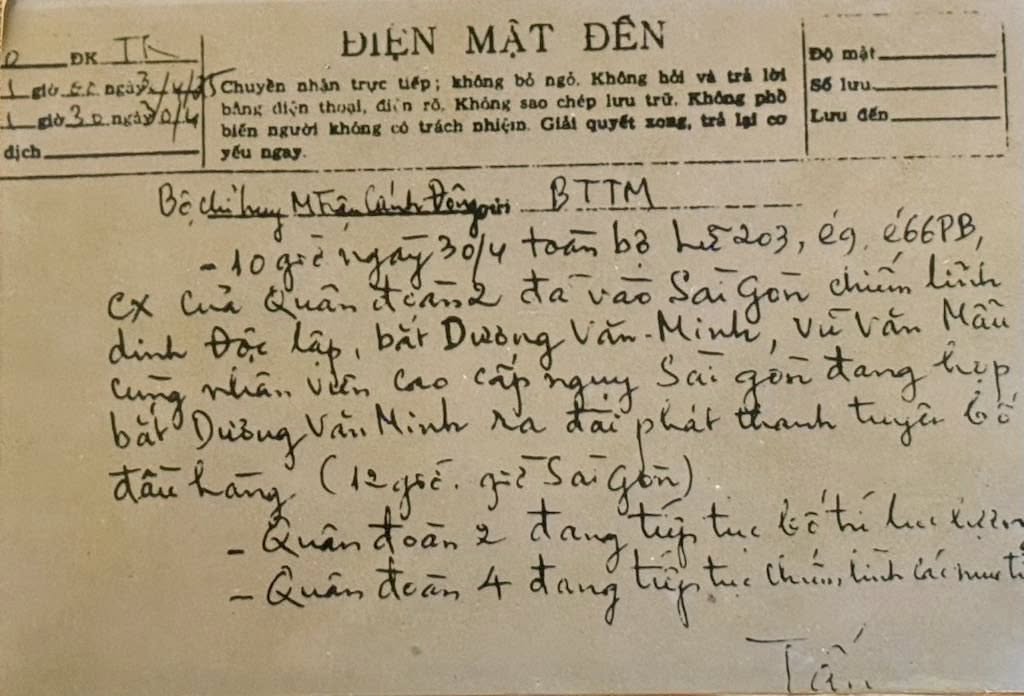 ĐIỆN MẬT ĐẾN
ĐK
giờ ngày
1 giờ 30 ngày 30/4
dịch
Chuyển nhận trực tiếp; không bỏ ngỏ. Không hỏi và trả lời
bằng điện thoại, điện rõ. Không sao chép lưu trữ. Không phổ
biến người không có trách nhiệm. Giải quyết xong, trả lại cơ
yếu ngay.
Độ mật
Số lưu
Lưu đến
Bộ chỉ huy M Trận Cánh Đông gửi BTTM
- 10 giờ ngày 30/4 toàn bộ Lữ 203, é9, é66PB,
CX của Quân đoàn 2 đã vào Sài Gòn chiếm lĩnh
dinh Độc lập, bắt Dương Văn Minh, Vũ Văn Mẫu
cùng nhân viên cao cấp ngụy Sài gòn đang họp
bắt Dương Văn Minh ra đài phát thanh tuyên bố
đầu hàng. (12 giờ. giờ Sài Gòn)
- Quân đoàn 2 đang tiếp tục bố trí lực lượng
- Quân đoàn 4 đang tiếp tục chiếm lĩnh các mục
Tấn